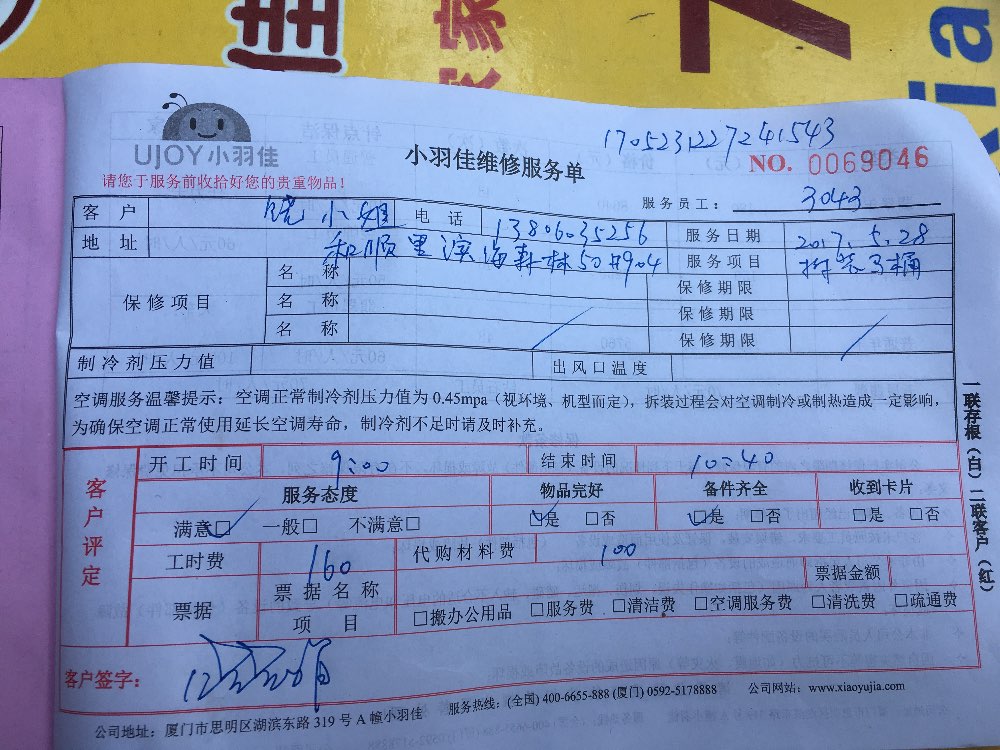 佳
7
xia
170523122724 1543
UJOY小羽佳
小羽佳维修服务单
NO. 0069046
请您于服务前收拾好您的贵重物品！
服务员工： 3043
客 户 饶小姐 电 话 13806035256 服务日期 2017.5.28
地 址 和顺里滨海森林50#904 服务项目 拆装马桶
保修项目 名 称 保修期限
名 称 保修期限
名 称 保修期限
制冷剂压力值 出风口温度
空调服务温馨提示：空调正常制冷剂压力值为 0.45mpa（视环境、机型而定），拆装过程会对空调制冷或制热造成一定影响，
为确保空调正常使用延长空调寿命，制冷剂不足时请及时补充。
客户评定
开工时间 9:00 结束时间 10:40
服务态度 物品完好 备件齐全 收到卡片
满意□ 一般□ 不满意□ □是 □否 □是 □否 □是 □否
工时费 160 代购材料费 100
票据 票据名称 票据金额
项 目 □搬办公用品 □服务费 □清洁费 □空调服务费 □清洗费 □疏通费
客户签字：
公司地址：厦门市思明区湖滨东路 319 号 A 幢小羽佳 服务热线：(全国) 400-6655-888 (厦门) 0592-5178888 公司网站：www.xiaoyujia.com
一联存根（白）二联客户（红）